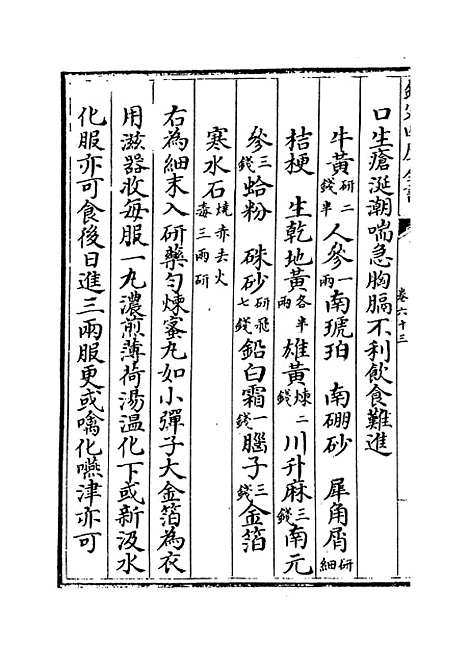 欽定四庫全書
卷六十三
口生瘡涎潮喘急胸膈不利飲食難進
牛黃研二錢半人參一兩南琥珀 南硼砂 犀角屑研細
桔梗 生乾地黃各半兩雄黃煉二錢川升麻三錢南元
參三錢蛤粉 硃砂研飛七錢鉛白霜一錢腦子三錢金箔
寒水石燒赤去火毒三兩研
右為細末入研藥勻煉蜜丸如小彈子大金箔為衣
用滋器收每服一丸濃煎薄荷湯溫化下或新汲水
化服亦可食後日進三兩服更或噙化嚥津亦可